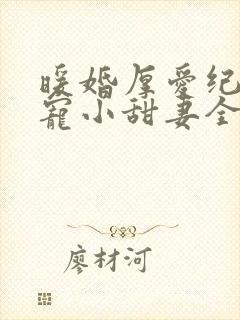 暖婚厚爱纪
寵小甜妻全
廖材河